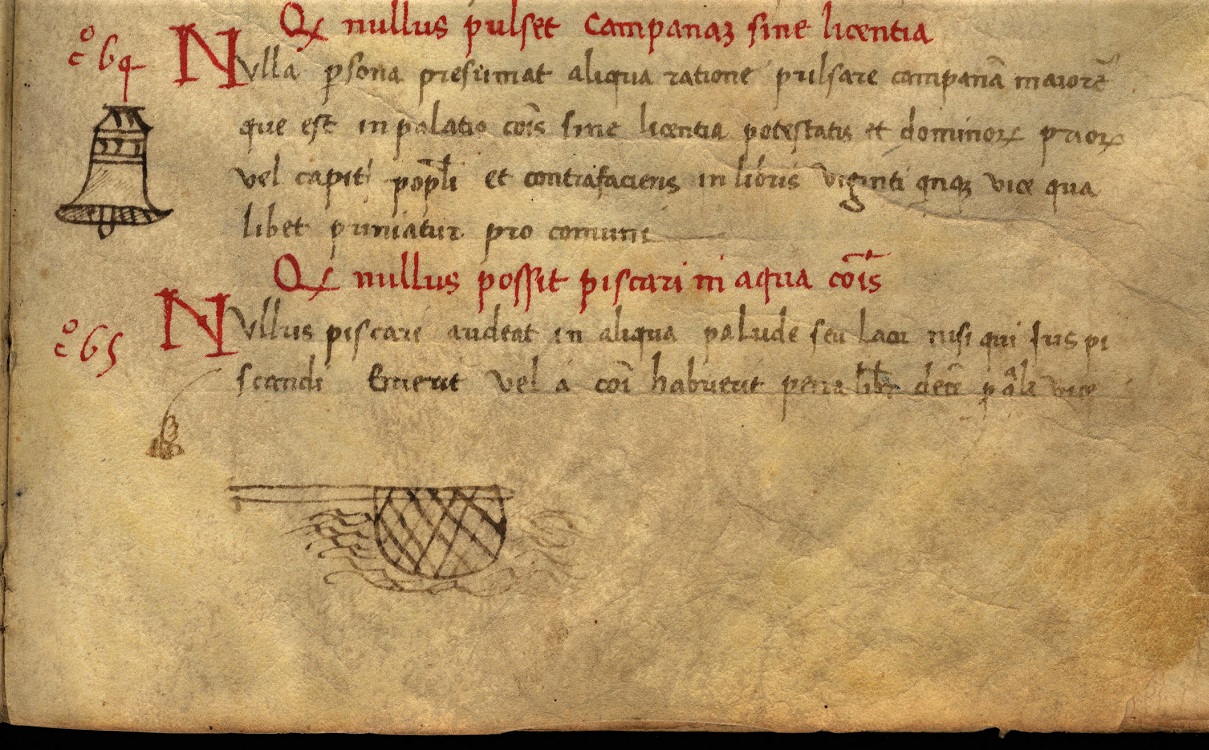 Qꝫ nullus pulset Campanaꝫ sine licentia
cº 64 Nulla ꝑsona presumat aliqua ratione pulsare campanā maiorē
que est in palatio cōis sine licentia potestatis et dominoꝝ prioꝝ
vel capit popl̄i et contrafaciens in libris viginti qnqꝫ vice qua
libet puniatur pro comuni
Qꝫ nullus possit piscari in aqua cōis
cº 65 Nullus piscari audeat in aliqua palude seu lacu nisi qui Jus pi
scandi Emerit vel a coī habuerit pena libr decē ꝑ qͣlꝫ vice